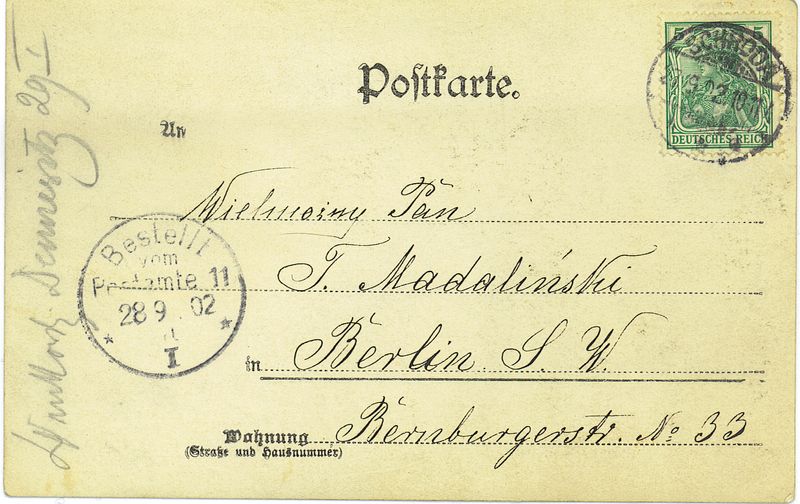 Postkarte.
5 5
SCHRODA
9.02.10-11
DEUTSCHES REICH
An
Wielmożny Pan
T. Madaliński
in Berlin S. W.
Wohnung Bernburgerstr. No 33
(Straße und Hausnummer)
Bestellt
vom
Postamte 11
28 9 02
I